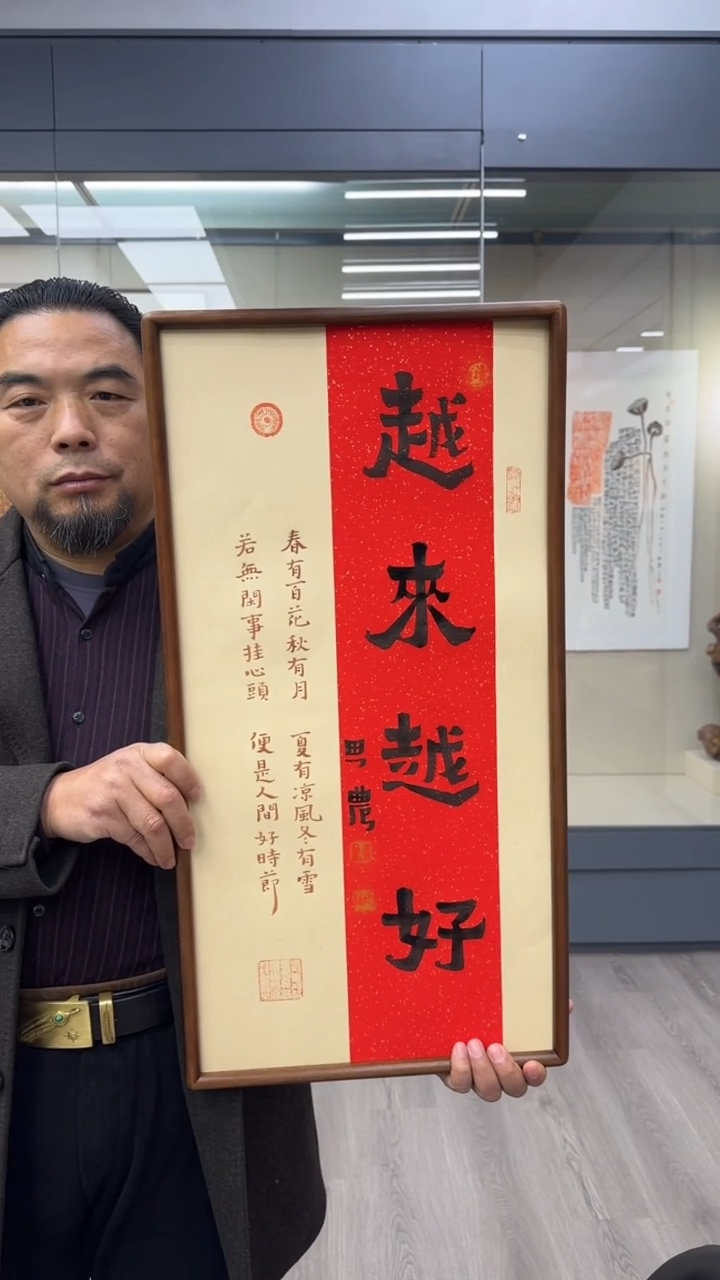 越來越好
春有百花秋有月 夏有凉風冬有雪
若無閑事挂心頭 便是人間好時節